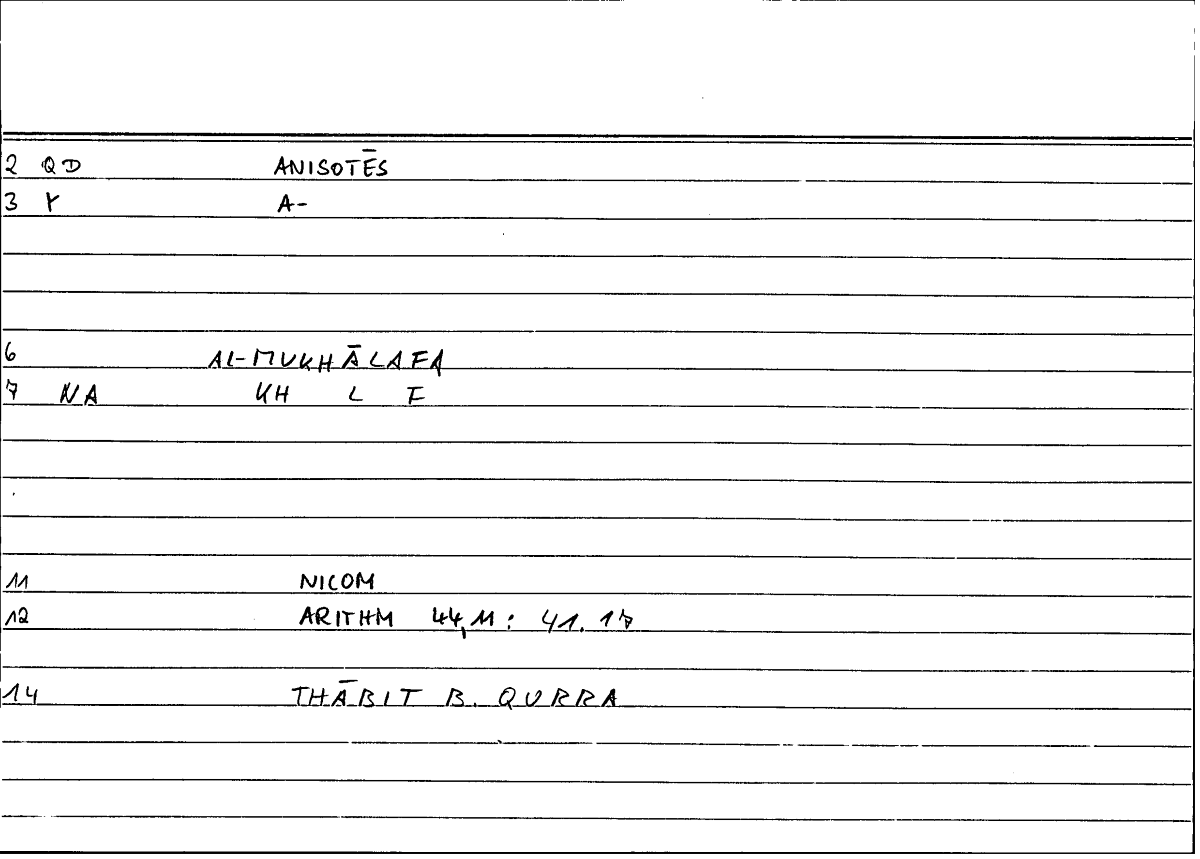 2 QD ANISOTĒS
3 Y A-
6 AL-MUKHĀLAFA
7 NA KH L F
11 NICOM
12 ARITHM 44,11: 41.17
14 THĀBIT B. QURRA